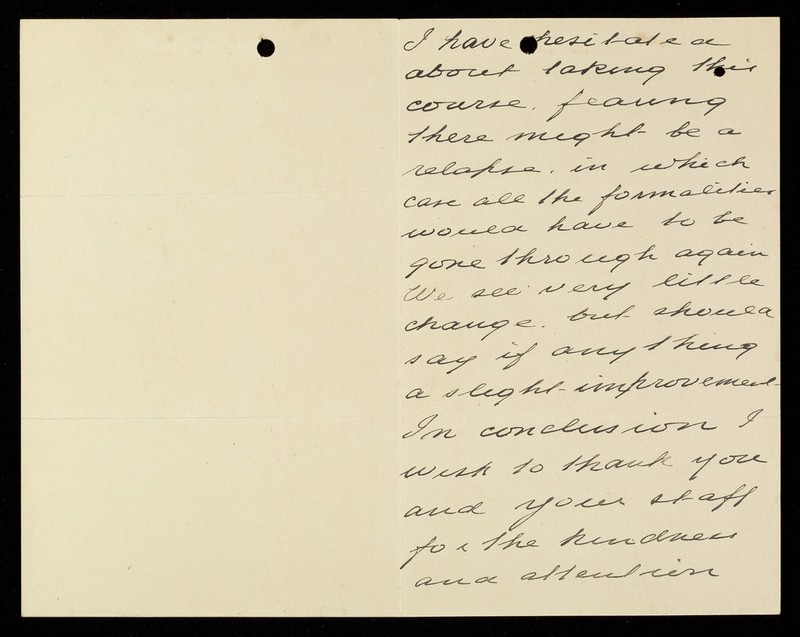 I have hesitated
about taking this
course. fearing
there might be a
relapse. in which
case all the formalities
would have to be
gone through again
We see very little
change. but should
say if anything
a slight improvement
In conclusion I
wish to thank you
and your staff
for the kindness
and attention